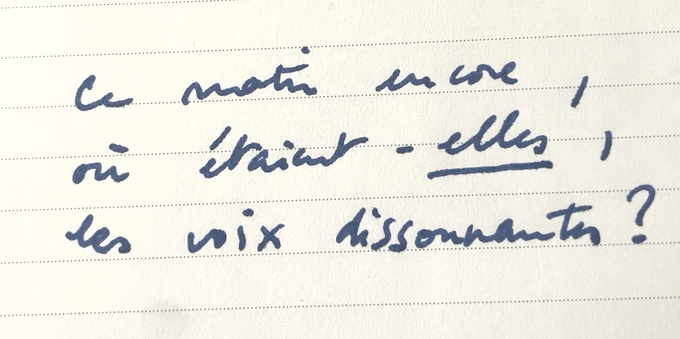 Ce matin encore,
où étaient-elles,
les voix dissonnantes ?